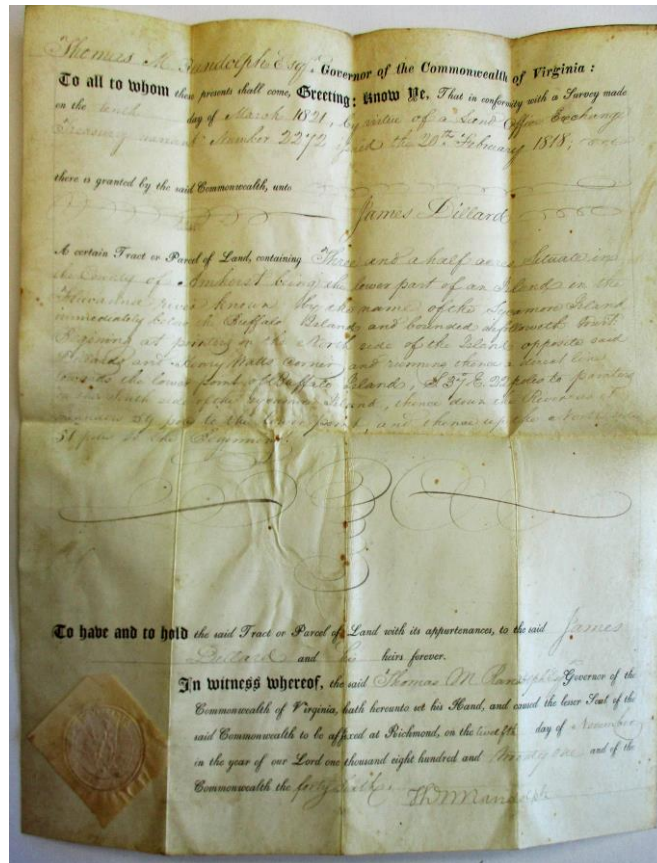 Thomas M Randolph Esqr. Governor of the Commonwealth of Virginia:
To all to whom these presents shall come, Greeting: Know Ye, That in conformity with a Survey made
on the tenth day of March 1821, by virtue of a Land Office Exchange
Treasury warrant Number 2272 the 20th February 1818;
there is granted by the said Commonwealth, unto
James Dillard
A certain Tract or Parcel of Land, containing Three and a half acres Situate in
the County of Amherst being the lower part of an Island in the
Fluvanna river known by the name of the Sycamore Island
immediately below the Buffalo Island, and bounded as followeth
Beginning at pointers on the North side of the Island opposite said
Dillards and Henry corner and running thence a direct line
towards the lower point of Buffalo Island, E 22 poles to pointers
on the South side of the Island, thence down the
39 poles to the lower point, and thence up the North
51 poles to the Beginning
To have and to hold the said Tract or Parcel of Land with its appurtenances, to the said James
Dillard and his heirs forever.
In witness whereof, the said Thomas M Randolph Esqr Governor of the
Commonwealth of Virginia, hath hereunto set his Hand, and caused the lesser Seal of the
said Commonwealth to be affixed at Richmond, on the day of November
in the year of our Lord one thousand eight hundred and twenty one and of the
Commonwealth the forty sixth.
Th M Randolph